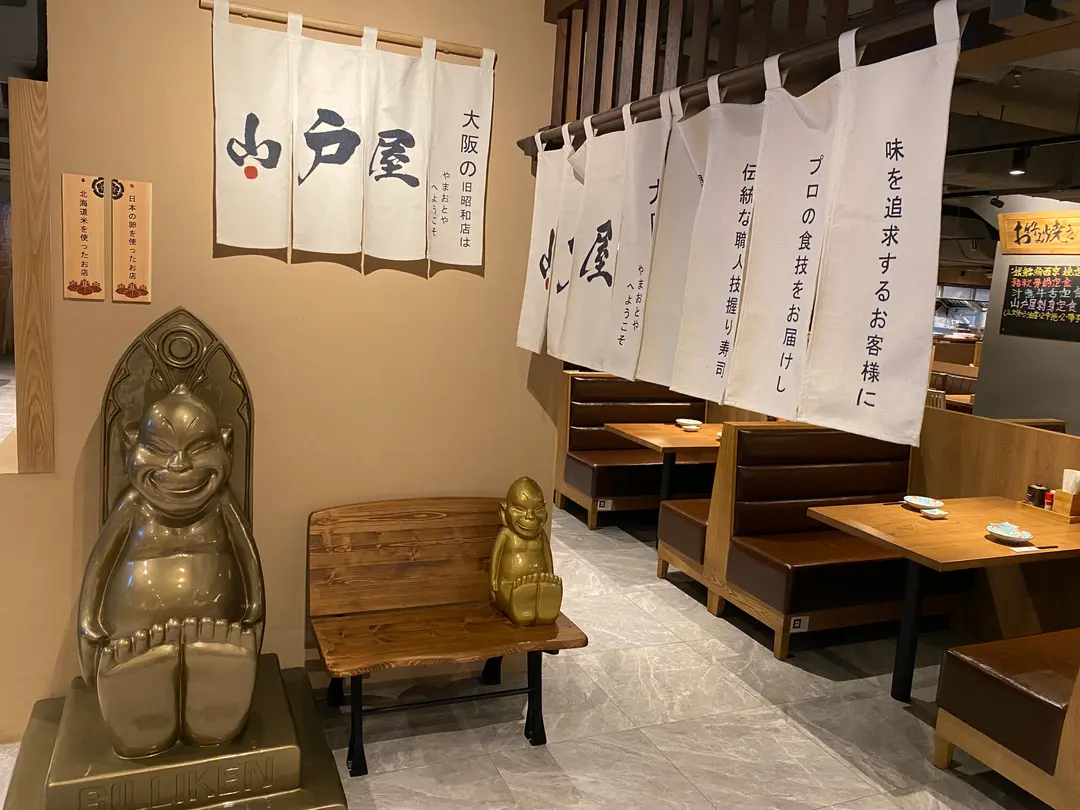 山戸屋
大阪の旧昭和店は
やまおとや
へようこそ
日本の卵を使ったお店
北海道米を使ったお店
味を追求するお客様に
プロの食技をお届けし
伝統な職人技握り寿司
やまおとや
へようこそ
屋
お好み焼き
BILLIKEN